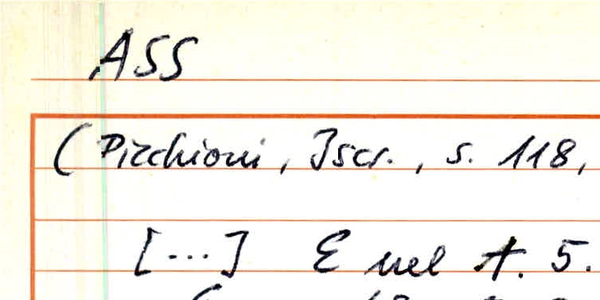 ASS
(Picchioni, Iscr., s. 118,
[...] E nel A. 5.